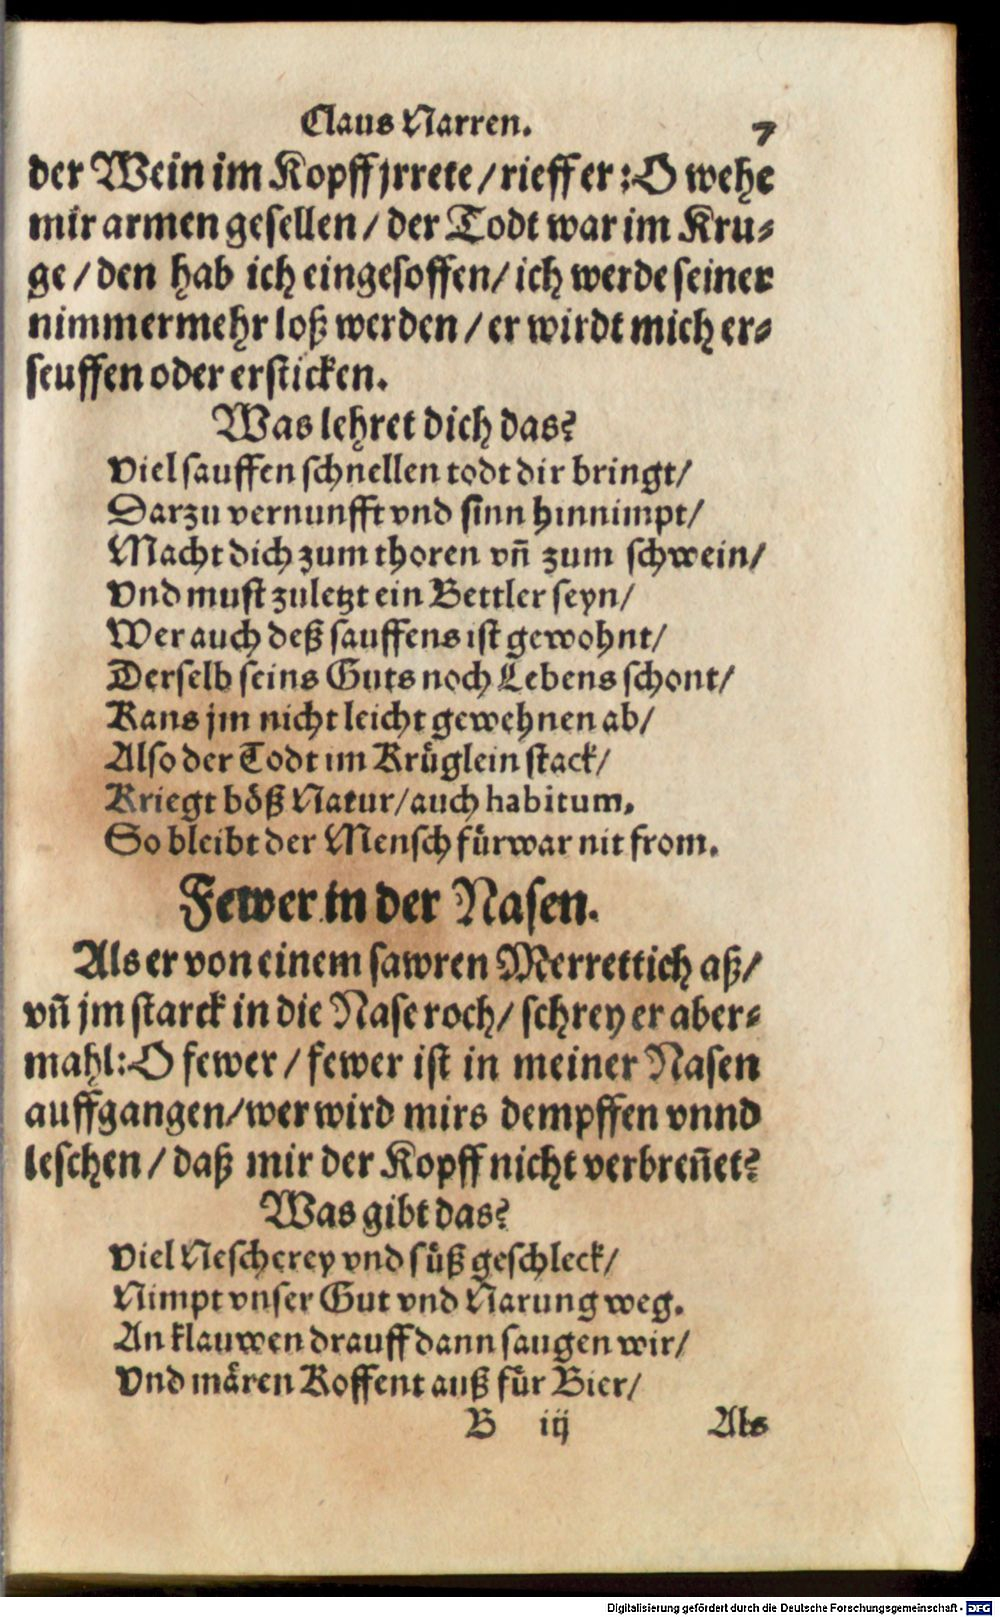 Claus Narren. 7
der Wein im Kopff jrrete / rieff er: O wehe
mir armen gesellen / der Todt war im Kru-
ge / den hab ich eingesoffen / ich werde seiner
nimmermehr loß werden / er wirdt mich er-
seuffen oder ersticken.
Was lehret dich das?
Viel sauffen schnellen todt dir bringt /
Darzu vernunfft vnd sinn hinnimpt /
Macht dich zum thoren vñ zum schwein /
Vnd must zuletzt ein Bettler seyn /
Wer auch deß sauffens ist gewohnt /
Derselb seins Guts noch Lebens schont /
Kans jm nicht leicht gewehnen ab /
Also der Todt im Krüglein stack /
Kriegt böß Natur / auch habitum,
So bleibt der Mensch fürwar nit from.
Fewer in der Nasen.
Als er von einem sawren Merrettich aß /
vñ jm starck in die Nase roch / schrey er aber-
mahl: O fewer / fewer ist in meiner Nasen
auffgangen / wer wird mirs dempffen vnnd
leschen / daß mir der Kopff nicht verbreñet?
Was gibt das?
Viel Nescherey vnd süß geschleck /
Nimpt vnser Gut vnd Narung weg.
An klauwen drauff dann saugen wir /
Vnd mären Koffent auß für Bier /
B iij Als
Digitalisierung gefördert durch die Deutsche Forschungsgemeinschaft - DFG